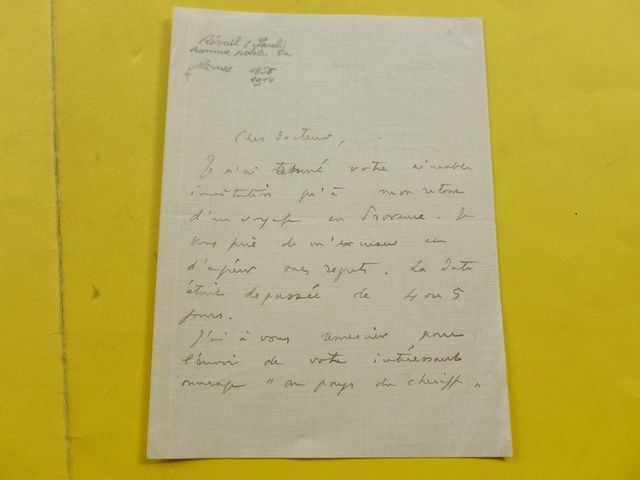 Révoil (Paul)
homme polit.
Nîmes 1856
† 1914
Cher Docteur,
Je n'ai trouvé votre aimable
invitation qu'à mon retour
d'un voyage en Provence. Je
vous prie de m'excuser et
d'agréer mes regrets. La date
était dépassée de 4 ou 5
jours.
J'ai à vous remercier pour
l'envoi de votre intéressant
ouvrage " au pays du cheriff "